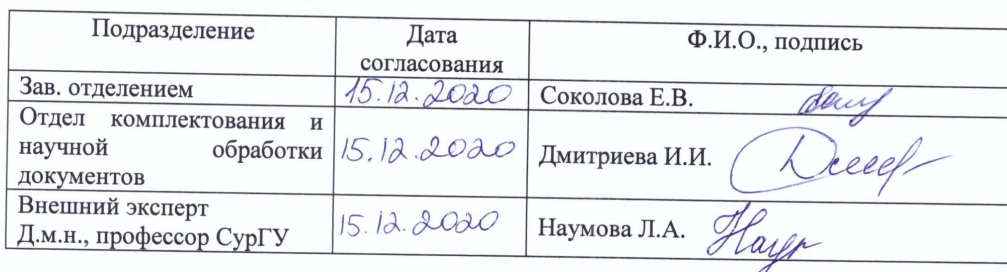 Подразделение Дата согласования Ф.И.О., подпись
Зав. отделением 15.12.2020 Соколова Е.В.
Отдел комплектования и
научной обработки 15.12.2020 Дмитриева И.И.
документов
Внешний эксперт
Д.м.н., профессор СурГУ 15.12.2020 Наумова Л.А.